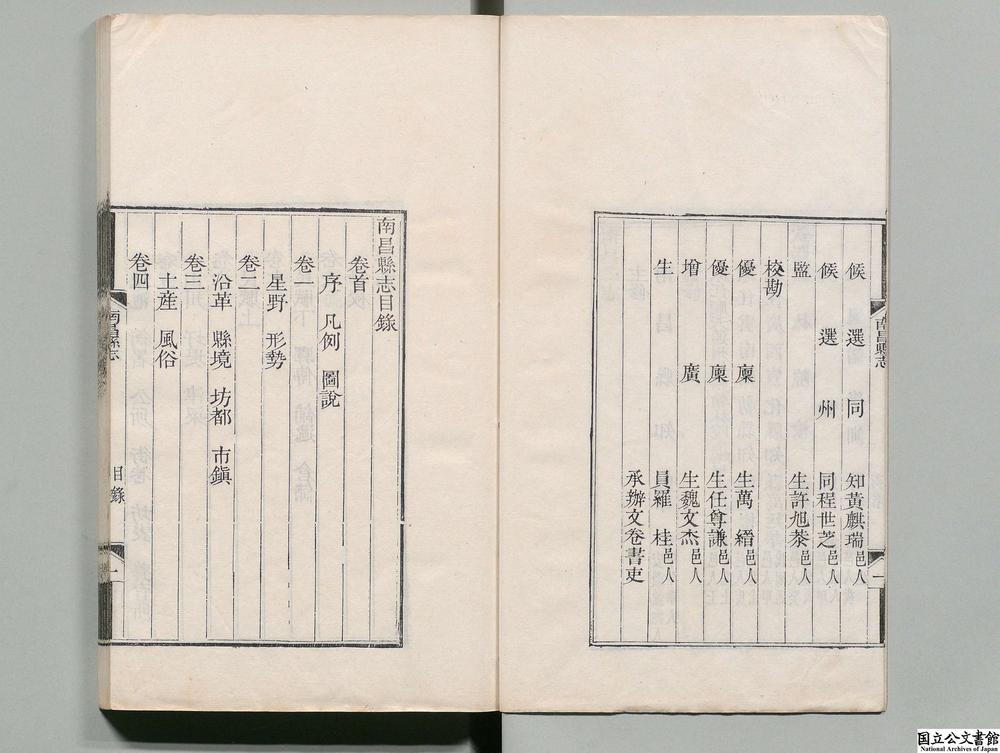 候選同知黃麒瑞邑人
候選州同程世芝邑人
監生許旭棻邑人
校勘
優廩生萬縉邑人
優廩生任尊謙邑人
增廣生魏文杰邑人
生員羅桂邑人
承辦文卷書吏
南昌縣志
一
南昌縣志目錄
卷首
序 凡例 圖說
卷一
星野 形勢
卷二
沿革 縣境 坊都 市鎮
卷三
土産 風俗
卷四
南昌縣志
目錄
一
国立公文書館
National Archives of Japan